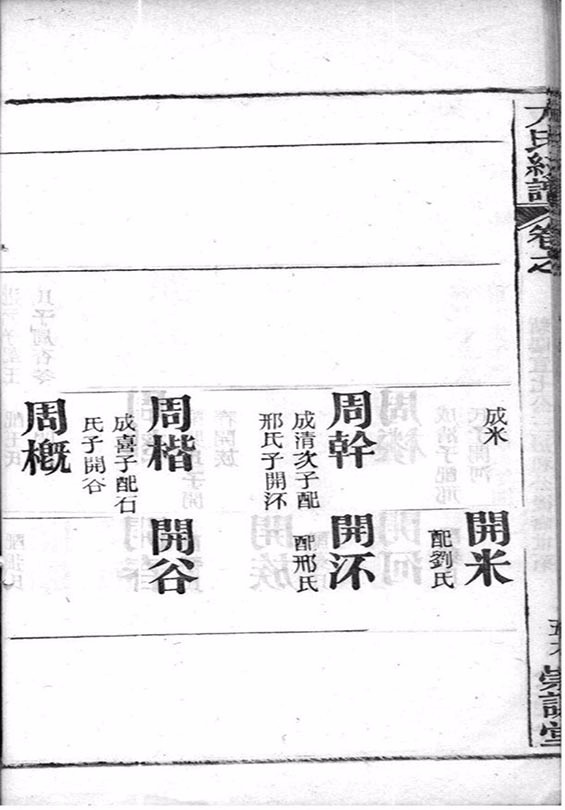 氏
譜
卷之
成米
周幹
成清次子配
邢氏子開
周楷
成喜子配石
氏子開谷
周概
開米
配劉氏
開
配邢氏
開谷